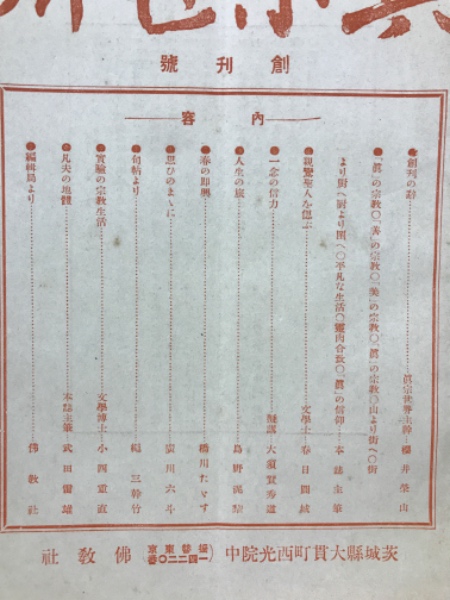 眞宗世界
創刊號
內容
●創刊の辭 眞宗世界主幹 櫻井榮山
●「眞」の宗教〇「善」の宗教〇「美」の宗教〇「眞」の宗教〇山より街へ〇街
より厨へ厨より園へ〇平凡な生活〇靈肉合致〇「眞」の信仰 本誌主筆
●親鸞聖人を偲ぶ 文學士 春日圓城
●一念の信力 大須賀秀道
●人生の旅 島野
●春の即興 橋川たゞす
●思ひのまゝに 廣川六斗
●句帖より 三幹竹
●實驗の宗教生活 文學博士 小西重直
●凡夫の地體 本誌主筆 武田雷雄
●編輯局より 佛教社
茨城縣大貫町西光院中 (振替東京一四二二〇番) 佛教社